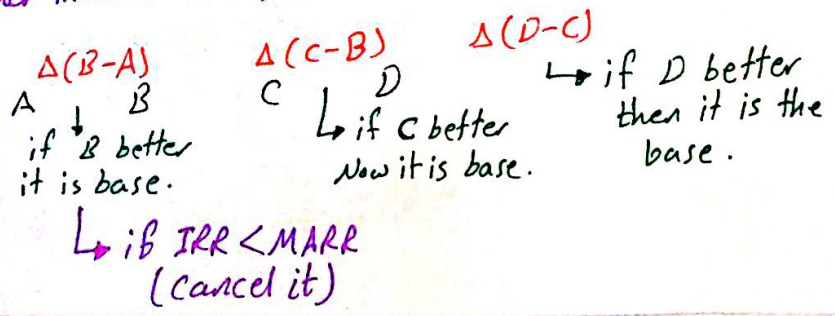 Δ(B-A) Δ(C-B) Δ(D-C)
A B C D
↓ if B better
it is base.
↳ if C better
Now it is base.
↳ if D better
then it is the
base.
↳ if IRR < MARR
(Cancel it)